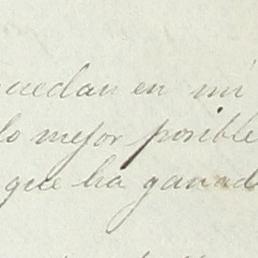 quedan en mi
lo mejor posible
que ha ganad